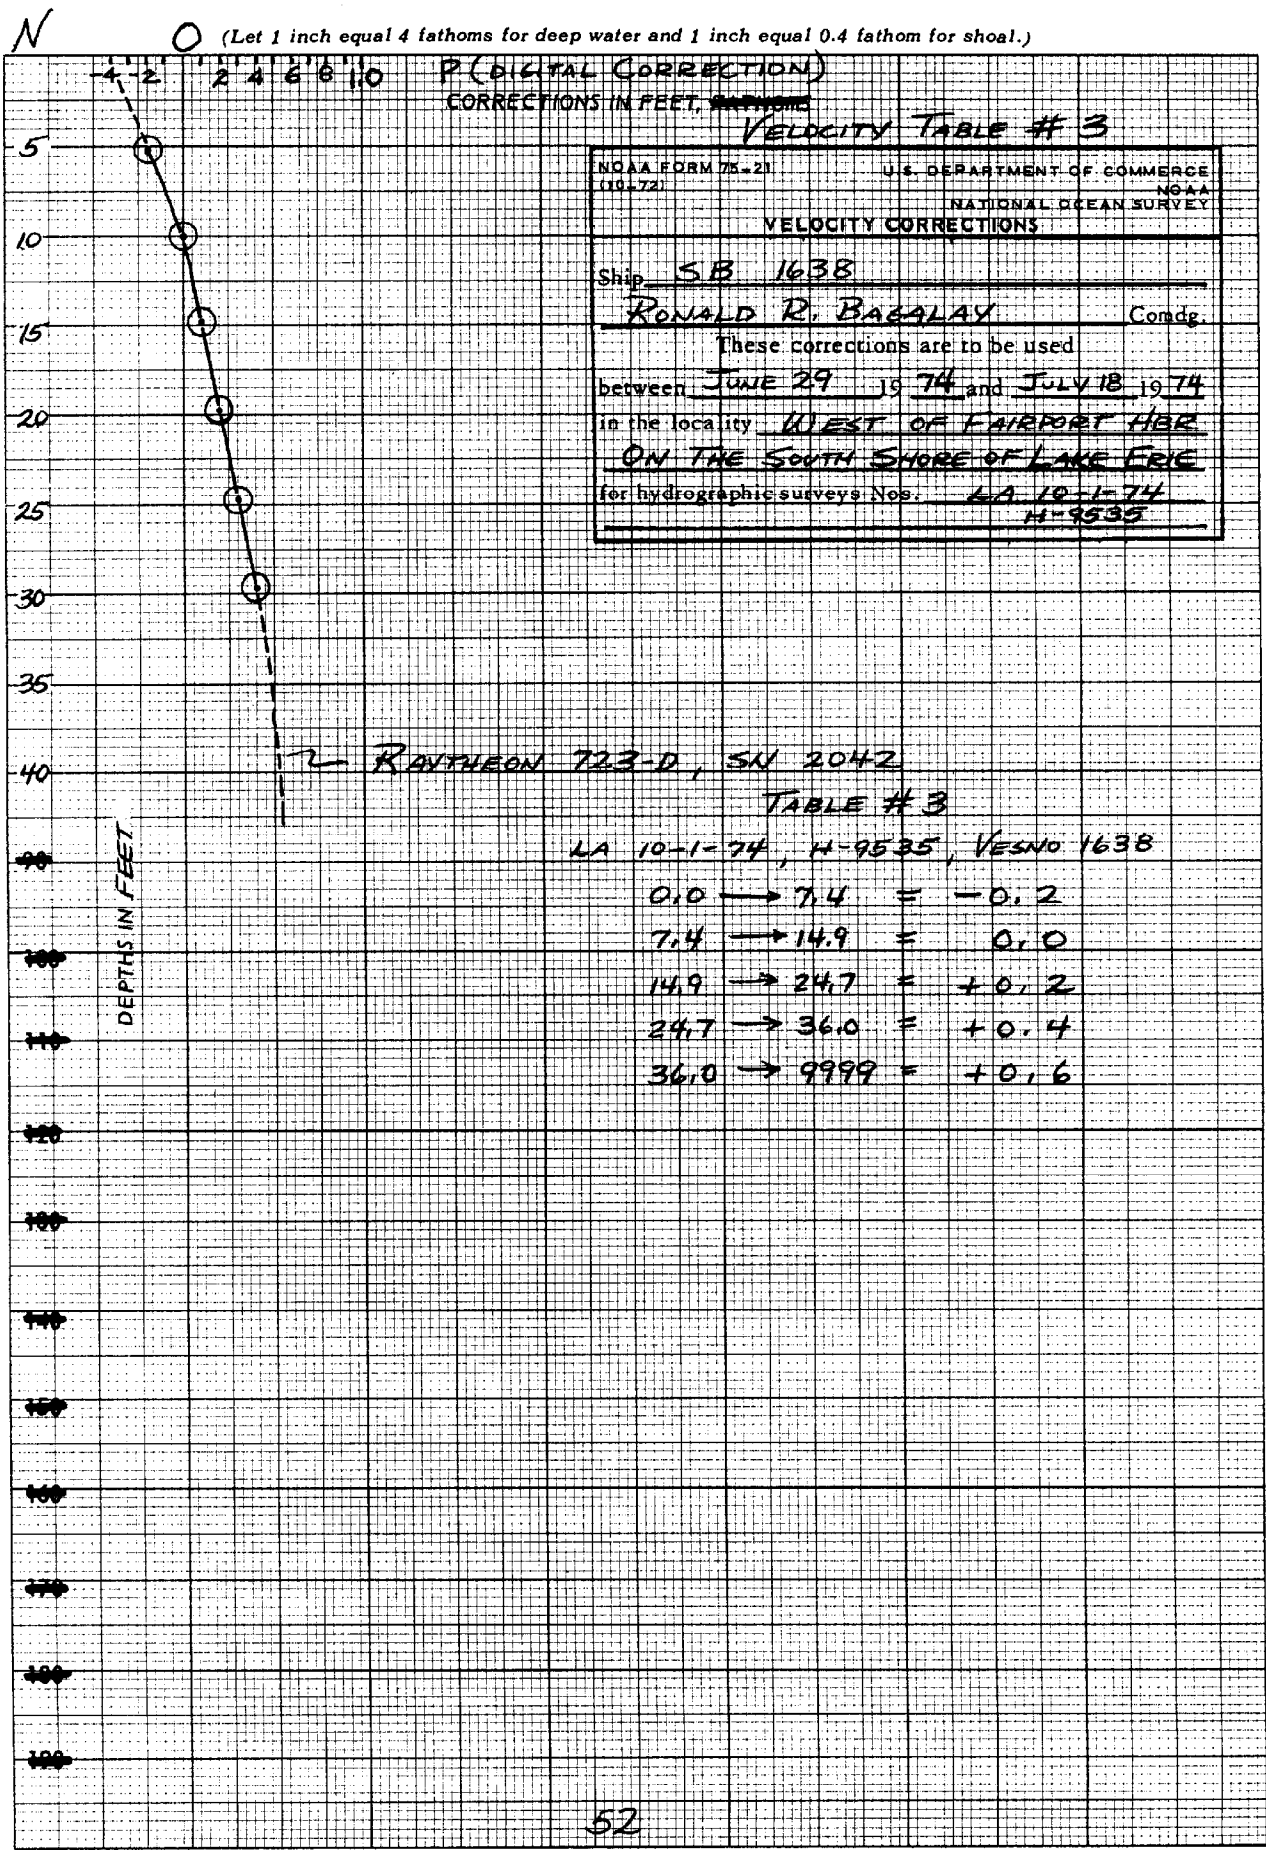 N O (Let 1 inch equal 4 fathoms for deep water and 1 inch equal 0.4 fathom for shoal.)
-4 -2 2 4 6 8 1.0 P (DIGITAL CORRECTION)
CORRECTIONS IN FEET, FATHOMS
VELOCITY TABLE # 3
NOAA FORM 75-21
(10-72)
U.S. DEPARTMENT OF COMMERCE
NOAA
NATIONAL OCEAN SURVEY
VELOCITY CORRECTIONS
Ship SB 1638
RONALD R. BAGALAY Comdg.
These corrections are to be used
between JUNE 29 19 74 and JULY 18 19 74
in the locality WEST OF FAIRPORT HBR
ON THE SOUTH SHORE OF LAKE ERIE
for hydrographic surveys Nos. LA 10-1-74
H-9535
5
10
15
20
25
30
35
40
90
100
110
120
130
140
150
160
170
180
190
DEPTHS IN FEET
RAYTHEON 723-D, SN 2042
TABLE # 3
LA 10-1-74, H-9535, VESNO 1638
0.0 → 7.4 = -0.2
7.4 → 14.9 = 0.0
14.9 → 24.7 = +0.2
24.7 → 36.0 = +0.4
36.0 → 9999 = +0.6
52